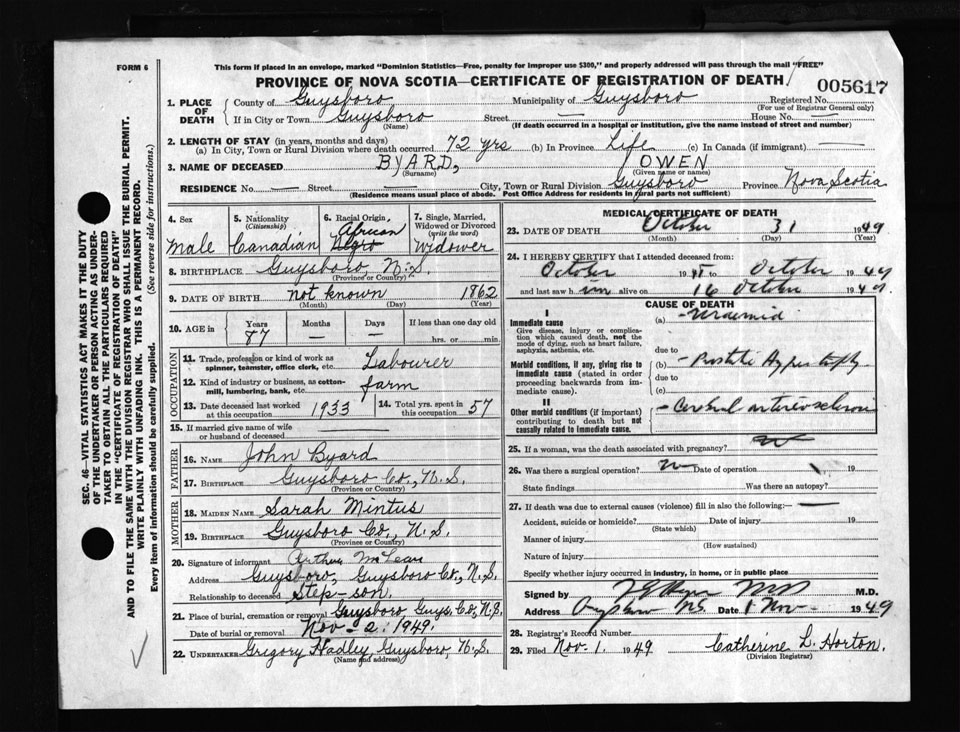 FORM 6
This form if placed in an envelope, marked "Dominion Statistics—Free, penalty for improper use $300," and properly addressed will pass through the mail "FREE"
PROVINCE OF NOVA SCOTIA—CERTIFICATE OF REGISTRATION OF DEATH
005617
1. PLACE OF DEATH
County of Guysboro Municipality of Guysboro Registered No.
(For use of Registrar General only)
If in City or Town Guysboro Street — House No. —
(Name) (If death occurred in a hospital or institution, give the name instead of street and number)
2. LENGTH OF STAY (in years, months and days)
(a) In City, Town or Rural Division where death occurred 72 yrs (b) In Province Life (c) In Canada (if immigrant) —
3. NAME OF DECEASED BYARD, OWEN
(Surname) (Given name or names)
RESIDENCE No. — Street — City, Town or Rural Division Guysboro Province Nova Scotia
(Residence means usual place of abode. Post Office Address for residents in rural parts not sufficient)
4. Sex
Male
5. Nationality
(Citizenship)
Canadian
6. Racial Origin
African
Negro
7. Single, Married, Widowed or Divorced
(write the word)
Widower
8. BIRTHPLACE Guysboro, N.S.
(Province or Country)
9. DATE OF BIRTH not known 1862
(Month) (Day) (Year)
10. AGE in
Years Months Days If less than one day old
87 — — hrs. or min.
OCCUPATION
11. Trade, profession or kind of work as spinner, teamster, office clerk, etc. Labourer
12. Kind of industry or business, as cotton-mill, lumbering, bank, etc. farm
13. Date deceased last worked at this occupation 1933
14. Total yrs. spent in this occupation 57
15. If married give name of wife or husband of deceased
FATHER
16. NAME John Byard
17. BIRTHPLACE Guysboro Co., N.S.
(Province or Country)
MOTHER
18. MAIDEN NAME Sarah Mintus
19. BIRTHPLACE Guysboro Co., N.S.
(Province or Country)
20. Signature of informant Arthur McLean
Address Guysboro, Guysboro Co., N.S.
Relationship to deceased Step-son.
21. Place of burial, cremation or removal Guysboro Guys. Co., N.S.
Date of burial or removal Nov-2, 1949.
22. UNDERTAKER Gregory Hadley, Guysboro, N.S.
(Name and address)
MEDICAL CERTIFICATE OF DEATH
23. DATE OF DEATH October 31 1949
(Month) (Day) (Year)
24. I HEREBY CERTIFY that I attended deceased from:
October 19 to October 1949
and last saw h im alive on 16 October 1949.
CAUSE OF DEATH
I
Immediate cause
Give disease, injury or complication which caused death, not the mode of dying, such as heart failure, asphyxia, asthenia, etc.
(a) Uraemia
due to
Morbid conditions, if any, giving rise to immediate cause (stated in order proceeding backwards from immediate cause).
(b) Prostate Hypertrophy
due to
(c)
II
Other morbid conditions (if important) contributing to death but not causally related to immediate cause.
Cerebral arteriosclerosis
25. If a woman, was the death associated with pregnancy?
26. Was there a surgical operation? Date of operation 19
State findings Was there an autopsy?
27. If death was due to external causes (violence) fill in also the following:— —
Accident, suicide or homicide? Date of injury 19
(State which)
Manner of injury
(How sustained)
Nature of injury
Specify whether injury occurred in industry, in home, or in public place
Signed by M.D.
Address Guysboro N.S. Date 1 Nov- 1949
28. Registrar's Record Number
29. Filed Nov. 1. 1949 Catherine L. Horton.
(Division Registrar)
SEC. 46—VITAL STATISTICS ACT MAKES IT THE DUTY
OF THE UNDERTAKER OR PERSON ACTING AS UNDER-
TAKER TO OBTAIN ALL THE PARTICULARS REQUIRED
IN THE "CERTIFICATE OF REGISTRATION OF DEATH"
AND TO FILE THE SAME WITH THE DIVISION REGISTRAR WHO SHALL ISSUE THE BURIAL PERMIT.
WRITE PLAINLY WITH UNFADING INK. THIS IS A PERMANENT RECORD.
Every item of information should be carefully supplied. (See reverse side for instructions.)